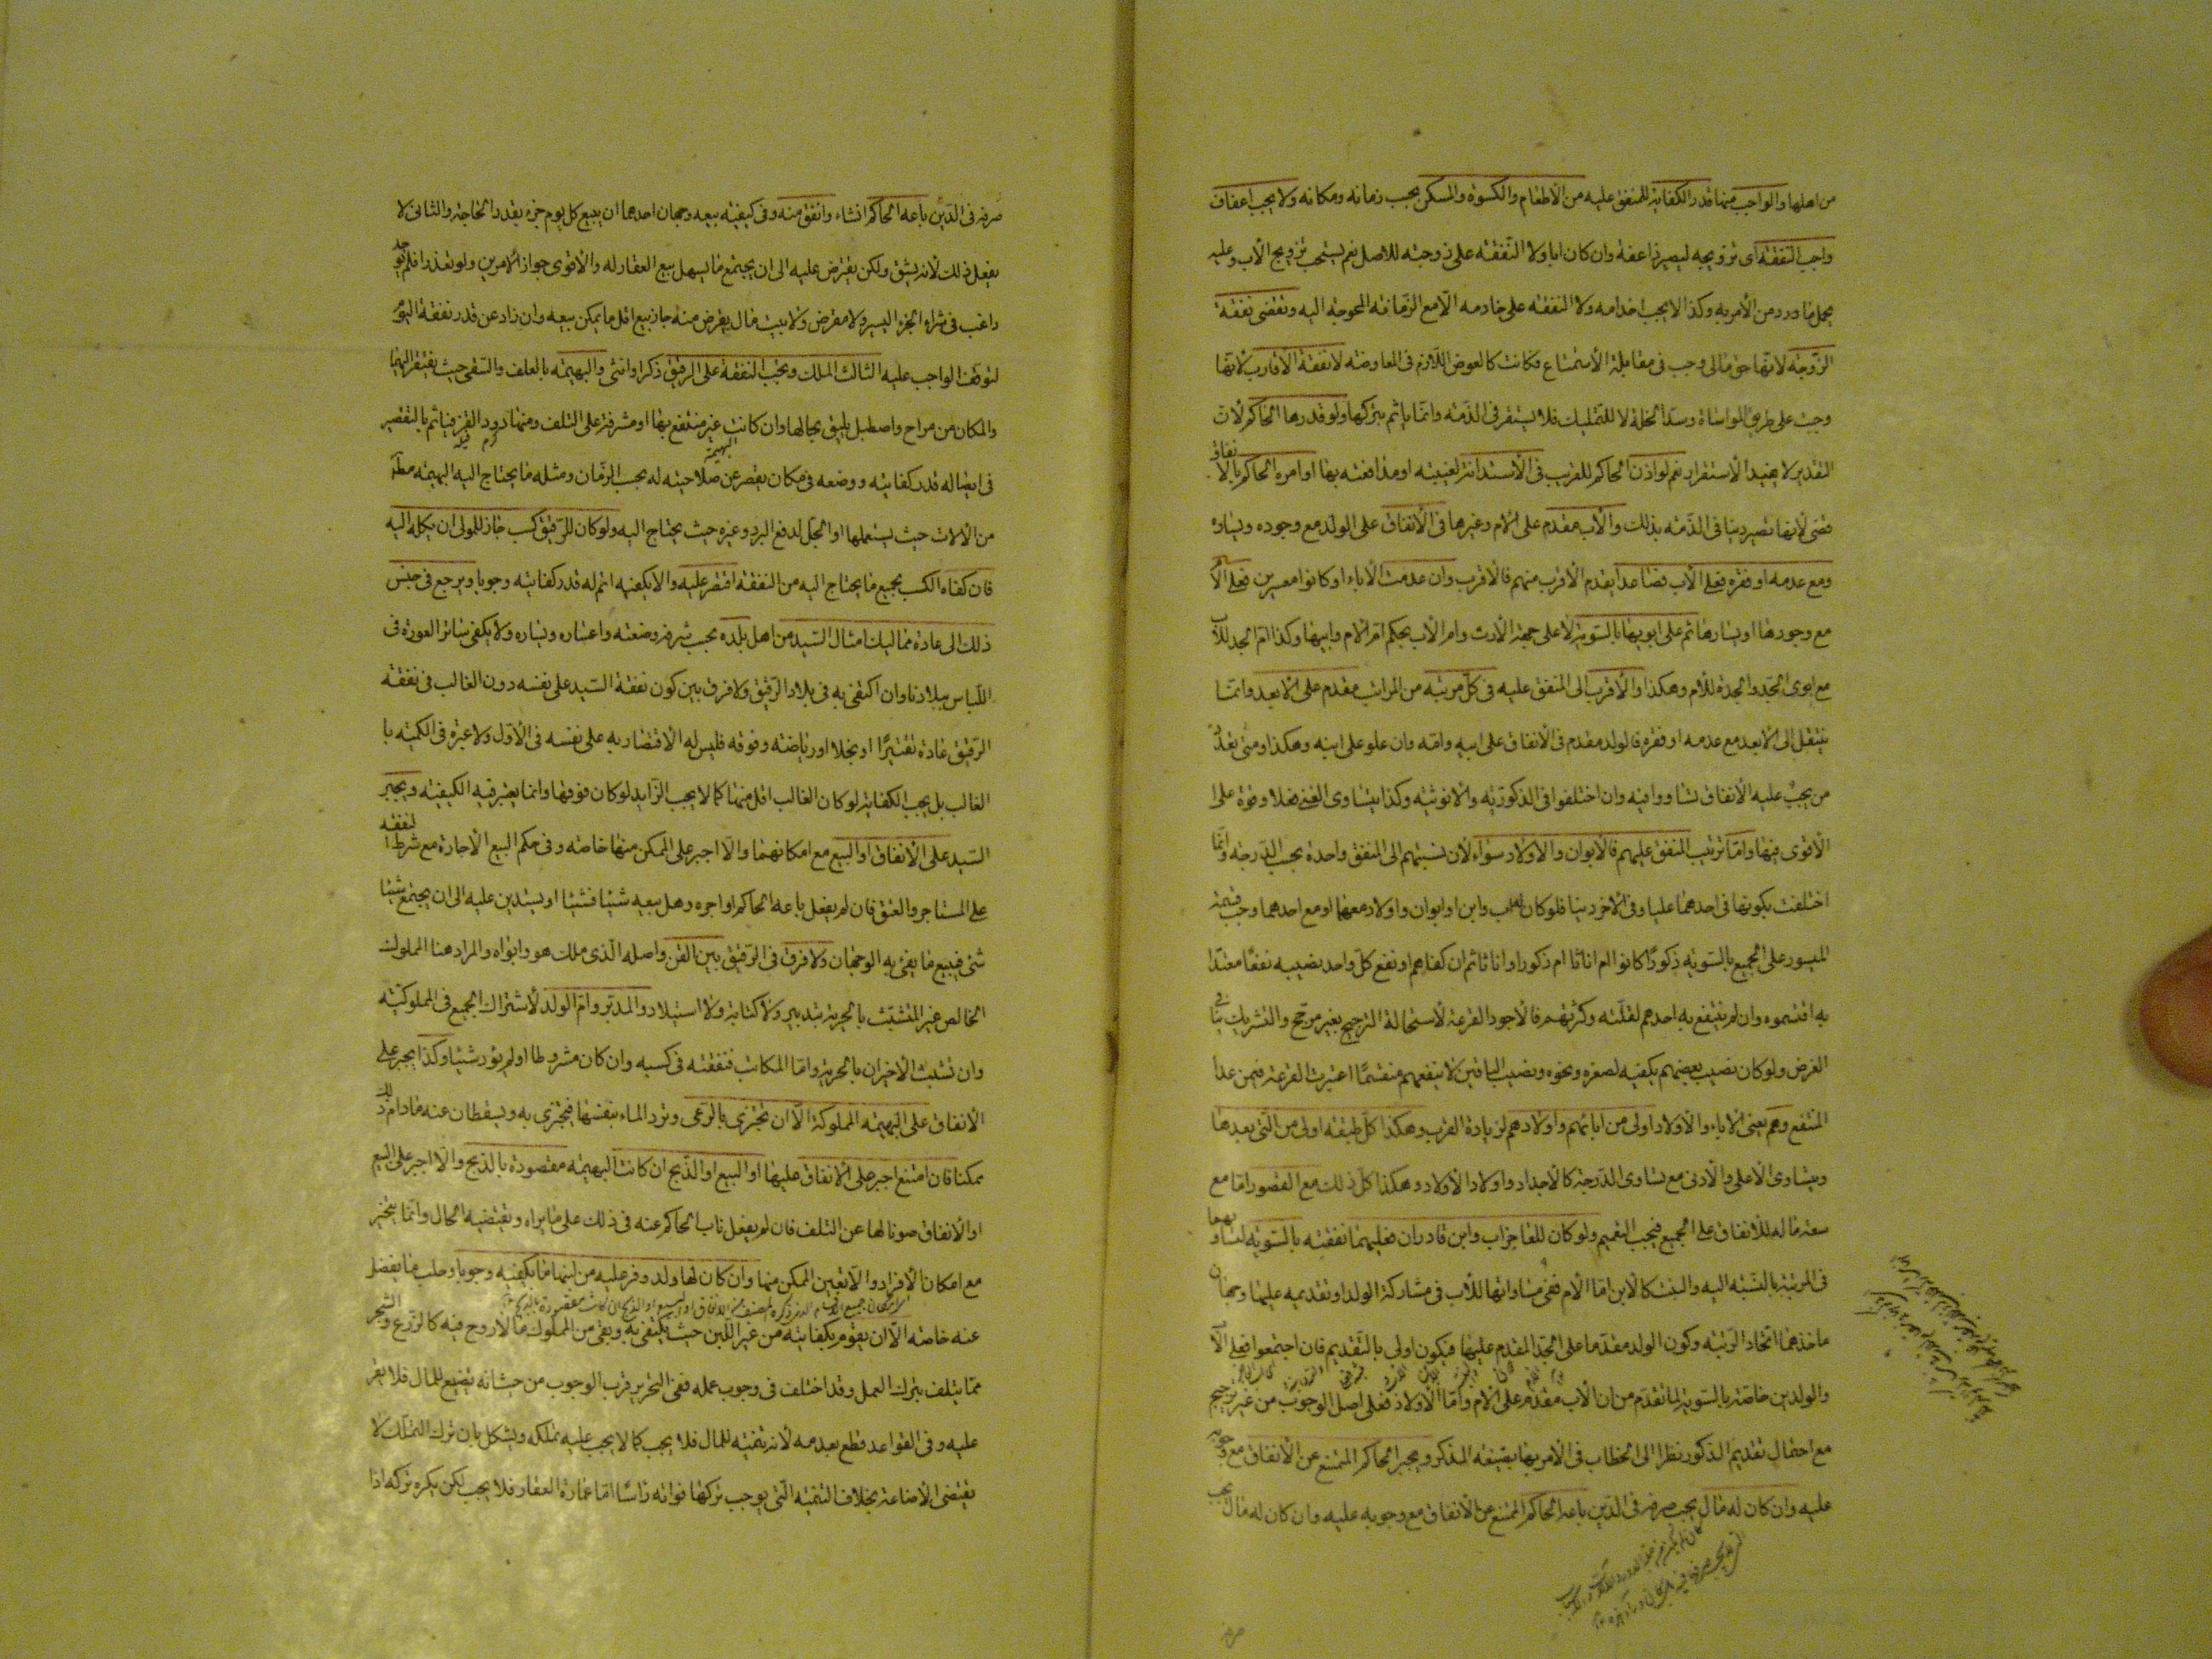 من اهلها والواجب منها قدر الكفاية للمنفق عليه من الاطعام والكسوة والمسكن بحسب زمانه ومكانه ولا يجب اعفاف
واجب النفقة اى تزويجه ليصير ذا عفة وان كان ابا ولا النفقة على زوجته للاصل نعم يستحب تزويج الاب وعليه
يحمل ما ورد من الامر به وكذا لا يجب اخدامه ولا النفقة على خادمه الا مع الزمانة المحوجة اليه وتقضى نفقة
الزوجة لانها حق مالى وجب فى مقابلة الاستمتاع فكانت كالعوض اللازم فى المعاوضة لا نفقة الاقارب لانها
وجبت على طريق المواساة وسد الخلة لا للتمليك فلا يستقر فى الذمة وانما ياثم بتركها ولو قدرها الحاكم لان
التقدير لا يفيد الاستقرار نعم لو اذن الحاكم للقريب فى الاستدانة لغيبته او مدافعته بها او امره الحاكم بالانفاق
قضى لانها تصير دينا فى الذمة بذلك والاب مقدم على الام وغيرها فى الانفاق على الولد مع وجوده ويساره
ومع عدمه او فقره فعلى الاب فصاعدا يقدم الاقرب منهم فالاقرب وان عدمت الاباء او كانوا معسرين فعلى الام
مع وجودها او يسارها ثم على ابويها بالسوية لا على جهة الارث وام الاب بحكم ام الام وابيها وكذا ام الجد للاب
مع ابوى الجد والجدة للام وهكذا والاقرب الى المنفق عليه فى كل مرتبة من المراتب مقدم على الابعد وانما
ينتقل الى الابعد مع عدمه او فقره فالولد مقدم فى الانفاق على ابيه وامه وان علو على ابنه وهكذا ومتى تعدد
من يجب عليه الانفاق تساووا فيه وان اختلفوا فى الذكورية والانوثية وكذا يتساوى الغنى فعلا وقوة على
الاقوى فيها واما ترتيب المنفق عليهم فالابوان والاولاد سواء لان نسبتهم الى المنفق واحدة بحسب الدرجة وانما
اختلفت بكونها فى احدهما عليا وفى الاخر دنيا فلو كان له اب وابن او ابوان واولاد معهما او مع احدهما وجب قسمة
الميسور على الجميع بالسوية ذكورا كانوا ام اناثا ام ذكورا واناثا ثم ان كفاهم او نفع كل واحد نصيبه نفعا معتدا
به اقتسموه وان لم ينتفع به احدهم لقلته وكثرتهم فالاجود القرعة لاستحالة الترجيح بغير مرجح والتشريك ينافى
الغرض ولو كان نصيب بعضهم يكفيه لصغره ونحوه ونصيب الباقين لا ينفعهم منقسما اعتبرت القرعة فيمن عدا
المنتفع وهم يعنى الاباء والاولاد اولى من ابائهم واولادهم لزيادة القرب وهكذا كل طبقة اولى من التى بعدها
ويتساوى الاعلى والادنى مع تساوى الدرجة كالاجداد واولاد الاولاد وهكذا كل ذلك مع القصور اما مع
سعة ماله للانفاق على الجميع فيجب التعميم ولو كان للعاجز اب وابن قادران فعليهما نفقته بالسوية لتساويهما
فى المرتبة بالنسبة اليه والبنت كالابن اما الام ففى مساواتها للاب فى مشاركة الولد او تقديمه عليها وجهان
ماخذهما اتحاد الرتبة وكون الولد مقدما على الجد المقدم عليها فيكون اولى بالتقديم فان اجتمعوا فعلى الاب
والولدين خاصة بالسوية لما تقدم من ان الاب مقدم على الام واما الاولاد فعلى اصل الوجوب من غير ترجيح
مع احتمال تقديم الذكور نظرا الى الخطاب فى الامر بها بصيغة المذكر ويجبر الحاكم الممتنع عن الانفاق مع وجوبه
عليه وان كان له مال يجب صرفه فى الدين باعه الحاكم الممتنع عن الانفاق مع وجوبه عليه وان كان له مال يجب
صرفه فى الدين باعه الحاكم انشاء وانفق منه وفى كيفية بيعه وجهان احدهما ان يبيع كل يوم جزء بقدر الحاجة والثانى لا
يفعل ذلك لانه يشق ولكن يقترض عليه الى ان يجتمع ما يسهل بيع العقار له والاقوى جواز الامرين ولو تعذرا فلم يوجد
راغب فى شراء الجزء اليسير ولا مقرض ولا بيت مال يقرض منه جاز بيع اقل ما يمكن بيعه وان زاد عن قدر نفقة اليوم
لتوقف الواجب عليه الثالث الملك وتجب النفقة على الرقيق ذكرا وانثى والبهيمة بالعلف والسقى حيث تفتقر اليهما
والمكان من مراح واصطبل يليق بحالها وان كانت غير منتفع بها او مشرفة على التلف ومنها دود القز فياثم بالتقصير
فى ايصاله قدر كفايته ووضعه فى مكان يقصر عن صلاحيته له بحسب الزمان ومثله ما يحتاج اليه البهيمة مطلقا
من الالات حيث يستعملها او الجل لدفع البرد وغيره حيث يحتاج اليه ولو كان للرقيق كسب جاز للمولى ان يكله اليه
فان كفاه الكسب بجميع ما يحتاج اليه من النفقة اقتصر عليه والا يكفيه اتم له قدر كفايته وجوبا ويرجع فى جنس
ذلك الى عادة مماليك امثال السيد من اهل بلده بحسب شرفه وضعته واعساره ويساره ولا يكفى ساتر العورة فى
اللباس ببلادنا وان اكتفى به فى بلاد الرقيق ولا فرق بين كون نفقة السيد على نفسه دون الغالب فى نفقة
الرقيق عادة تقتيرا او بخلا او رياضة وفوقه فليس له الاقتصار به على نفسه فى الاول ولا عبرة فى الكمية با
الغالب بل يجب الكفاية لو كان الغالب اقل منها كما لا يجب الزايد لو كان فوقها وانما يعتبر فيه الكيفية ويجبر
السيد على الانفاق او البيع مع امكانهما والا اجبر على الممكن منها خاصة وفى حكم البيع الاجارة مع شرط النفقة
على المستاجر والعتق فان لم يفعل باعه الحاكم او اجره وهل يبيعه شيئا فشيئا او يستدين عليه الى ان يجتمع شيئا
شئ فيبيع ما يفى به الوجهان ولا فرق فى الرقيق بين القن واصله الذى ملك هو وابواه والمراد هنا المملوك
الخالص غير المتشبث بالحرية بتدبير ولا كتابة ولا استيلاد والمدبر وام الولد لاشتراك الجميع فى المملوكية
وان تشبث الاخيران بالحرية واما المكاتب فنفقته فى كسبه وان كان مشروطا او لم يؤد شيئا وكذا يجبر على
الانفاق على البهيمة المملوكة الا ان تجتزى بالرعى وترد الماء بنفسها فيجتزى به ويسقطان عنه مادام ذلك
ممكنا فان امتنع اجبر على الانفاق عليها او البيع او الذبح ان كانت البهيمة مقصودة بالذبح والا اجبر على البيع
او الانفاق صونا لها عن التلف فان لم يفعل ناب الحاكم عنه فى ذلك على ما يراه ويقتضيه الحال وانما يتخير
مع امكان الافراد والا تعين الممكن منها وان كان لها ولد وفر عليه من لبنها ما يكفيه وجوبا وحلب ما يفضل
عنه خاصة الا ان يقوم بكفايته من غير اللبن حيث يكتفى به وبقى من المملوك ما لا روح فيه كالزرع والشجر
مما يتلف بترك العمل وقد اختلف فى وجوب عمله ففى التحرير قرب الوجوب من حيث انه تضييع للمال فلا يقر
عليه وفى القواعد قطع بعدمه لانه تنمية للمال فلا يجب كما لا يجب عليه تملكه ويشكل بان ترك التملك لا
يقتضى الاضاعة بخلاف التنمية التى يوجب تركها فواته راسا اما عمارة العقار فلا يجب لكن يكره تركه اذا